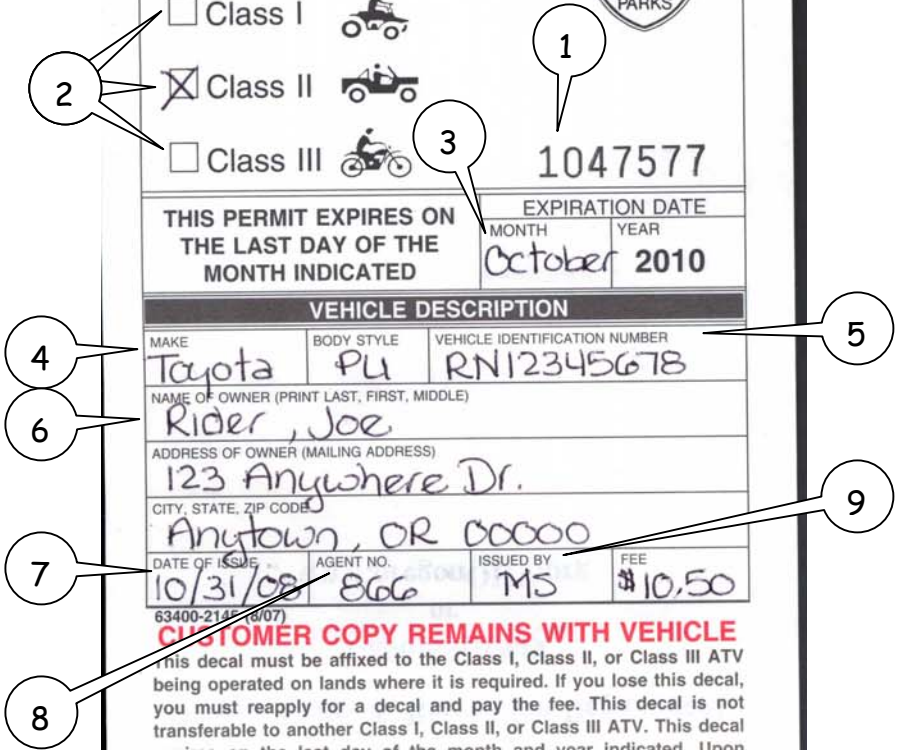 Class I
PARKS
1
2
Class II
3
Class III
1047577
THIS PERMIT EXPIRES ON
THE LAST DAY OF THE
MONTH INDICATED
EXPIRATION DATE
MONTH YEAR
October 2010
VEHICLE DESCRIPTION
4
5
MAKE BODY STYLE VEHICLE IDENTIFICATION NUMBER
Toyota PU RN12345678
6
NAME OF OWNER (PRINT LAST, FIRST, MIDDLE)
Rider, Joe
ADDRESS OF OWNER (MAILING ADDRESS)
123 Anywhere Dr.
9
CITY, STATE, ZIP CODE
Anytown, OR 00000
7
DATE OF ISSUE AGENT NO. ISSUED BY FEE
10/31/08 866 MS $10.50
63400-2145 (8/07)
CUSTOMER COPY REMAINS WITH VEHICLE
This decal must be affixed to the Class I, Class II, or Class III ATV
being operated on lands where it is required. If you lose this decal,
8
you must reapply for a decal and pay the fee. This decal is not
transferable to another Class I, Class II, or Class III ATV. This decal
expires on the last day of the month and year indicated. Upon